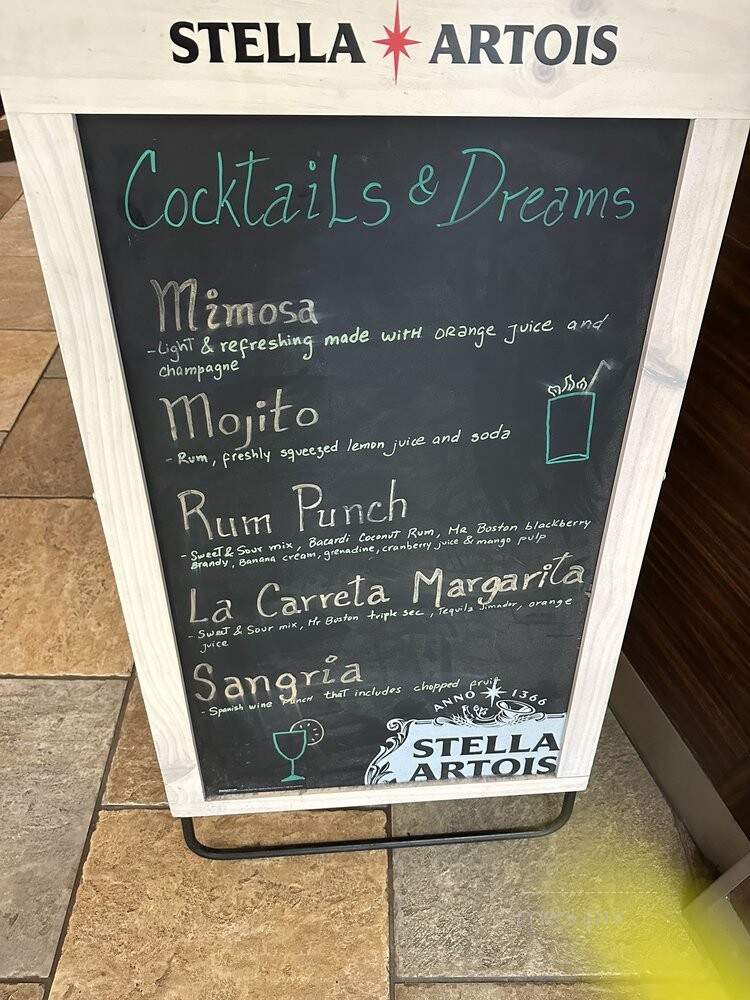 STELLA ARTOIS
Cocktails & Dreams
Mimosa
- Light & refreshing made with orange juice and
champagne
Mojito
- Rum, freshly squeezed lemon juice and soda
Rum Punch
- Sweet & Sour mix, Bacardi Coconut Rum, Mr Boston blackberry
Brandy, Banana cream, grenadine, cranberry juice & mango pulp
La Carreta Margarita
- Sweet & Sour mix, Mr Boston triple sec, Tequila Jimador, orange
juice
Sangria
- Spanish wine punch that includes chopped fruit
ANNO 1366
STELLA
ARTOIS